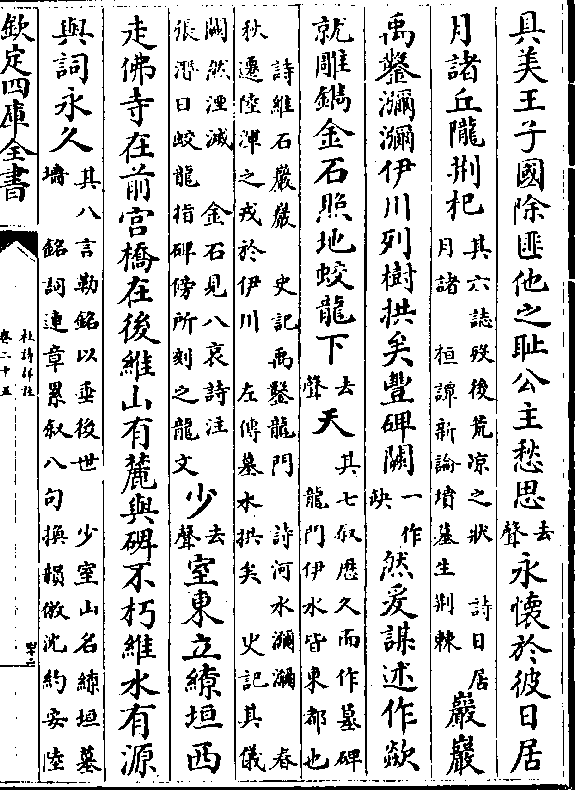 具美王子國除匪他之恥公主愁思去聲永懷於彼日居
月諸丘隴荆杞其六誌歿後荒凉之狀 詩日居月諸 桓譚新論墳墓生荆棘巖巖
禹鑿瀰瀰伊川列樹拱矣豐碑闕一作缺然爰謀述作歘
就雕鐫金石照地蛟龍下去聲天其七叙歷久而作墓碑龍門伊水皆東都也
詩維石巖巖 史記禹鑿龍門 詩河水瀰瀰 春
秋遷陸渾之戎於伊川 左傳墓水拱矣 史記其儀
闕然湮滅 金石見八哀詩注張潛曰蛟龍指碑傍所刻之龍文少去聲室東立繚垣西
走佛寺在前宫橋在後維山有麓與碑不朽維水有源
與詞永久其八言勒銘以垂後世 少室山名繚垣墓墻 銘詞連章累叙八句換韻倣沈約安陸
欽定四庫全書
杜詩詳註
卷二十五